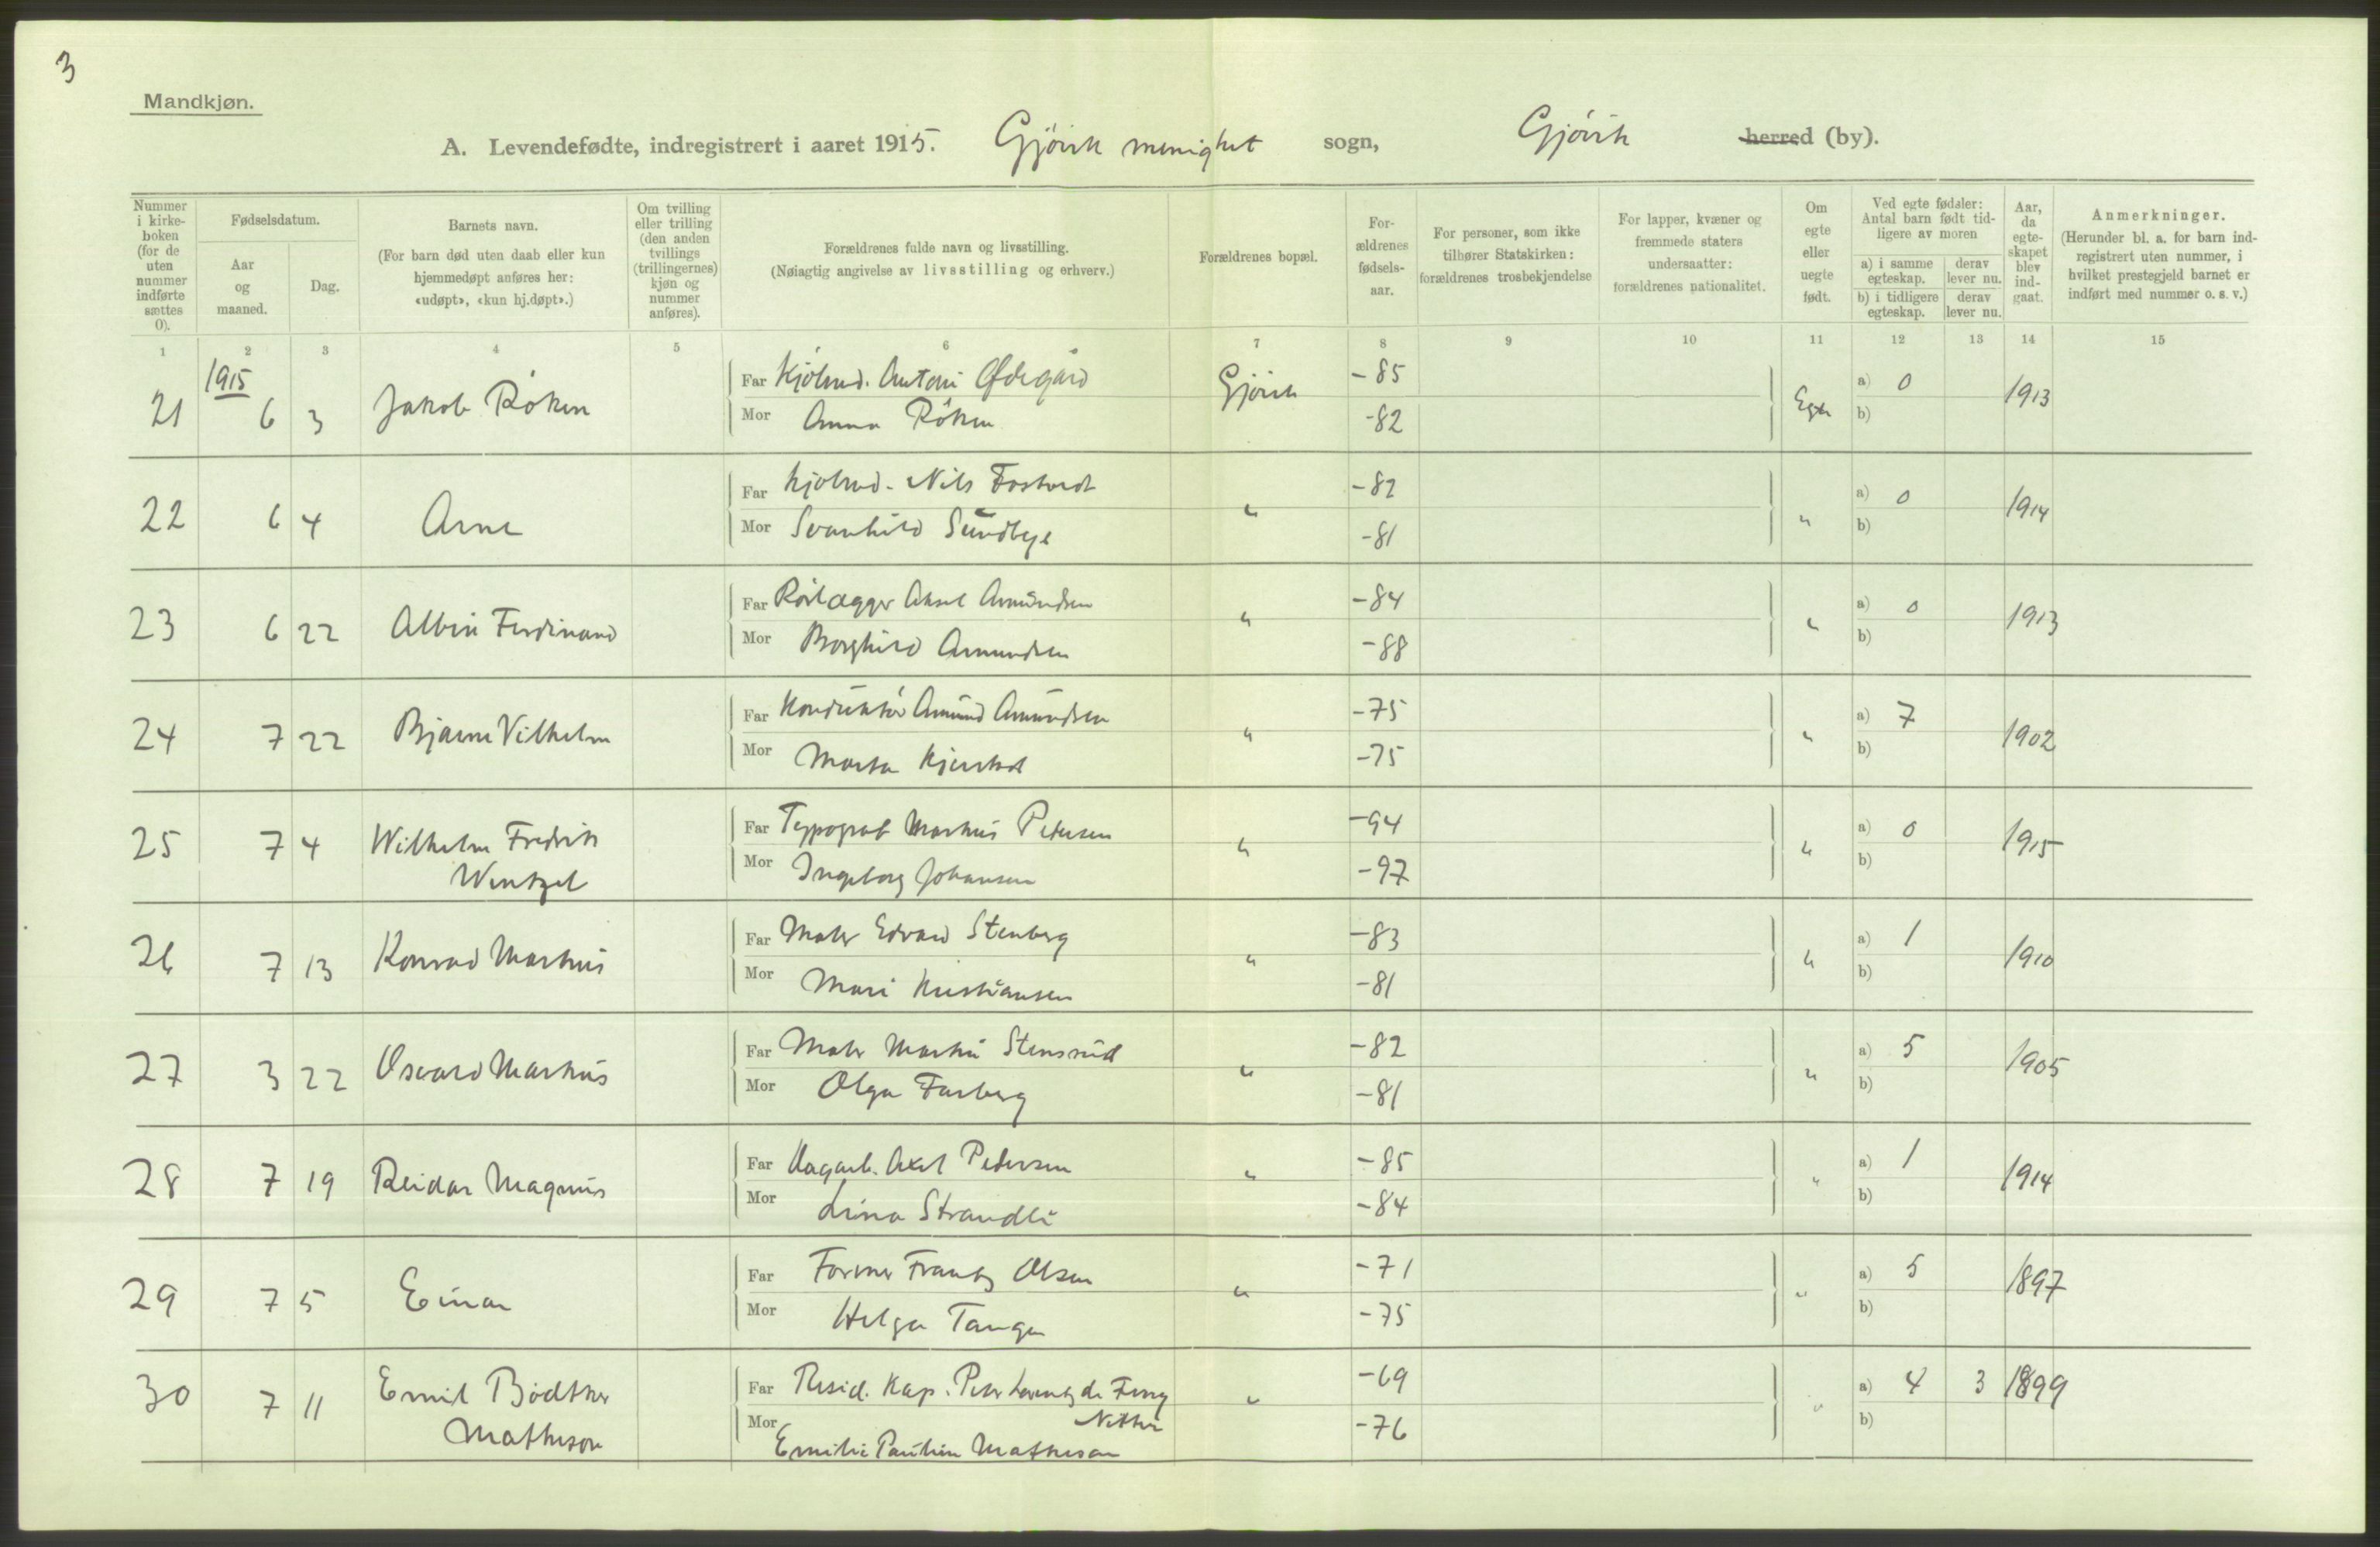 3
Mandkjøn.
A. Levendefødte, indregistrert i aaret 1915. Gjövik menighet sogn, Gjövik herred (by).
Nummer i kirkeboken (for de uten nummer indførte sættes 0).
Fødselsdatum.
Aar og maaned.
Dag.
Barnets navn.
(For barn død uten daab eller kun hjemmedøpt anføres her: «udøpt», «kun hj.døpt».)
Om tvilling eller trilling (den anden tvillings (trillingernes) kjøn og nummer anføres).
Forældrenes fulde navn og livsstilling.
(Nøiagtig angivelse av livsstilling og erhverv.)
Forældrenes bopæl.
Forældrenes fødselsaar.
For personer, som ikke tilhører Statskirken: forældrenes trosbekjendelse
For lapper, kvæner og fremmede staters undersaatter: forældrenes nationalitet.
Om egte eller uegte født.
Ved egte fødsler: Antal barn født tidligere av moren
a) i samme egteskap. derav lever nu.
b) i tidligere egteskap. derav lever nu.
Aar, da egteskapet blev indgaat.
Anmerkninger.
(Herunder bl. a. for barn indregistrert uten nummer, i hvilket prestegjeld barnet er indført med nummer o. s. v.)
1 2 3 4 5 6 7 8 9 10 11 12 13 14 15
1915
21 6 3 Jakob Röken Far Kjölmd. Antoni Ødegård Gjövik -85 Egte a) 0 1913
Mor Anna Röken -82 b)
22 6 4 Arne Far Kjølmd. Nils Fostvedt " -82 " a) 0 1914
Mor Svanhild Sundbye -81 b)
23 6 22 Albin Ferdinand Far Rörlægger Aksel Amundsen " -84 " a) 0 1913
Mor Borghild Amundsen -88 b)
24 7 22 Bjarne Vilhelm Far Konduktör Amund Amundsen " -75 " a) 7 1902
Mor Marta Kjerstad -75 b)
25 7 4 Wilhelm Fredrik Far Typograf Markus Petersen " -94 " a) 0 1915
Wentzel Mor Ingeborg Johansen -97 b)
26 7 13 Konrad Markus Far Maler Edvard Stenberg " -83 " a) 1 1910
Mor Mari Kristiansen -81 b)
27 3 22 Osvard Markus Far Maler Martin Stensrud " -82 " a) 5 1905
Mor Olga Farberg -81 b)
28 7 19 Reidar Magnus Far Axel Pedersen " -85 " a) 1 1914
Mor Lina Strandli -84 b)
29 7 5 Einar Far Former Frantz Olsen " -71 " a) 5 1897
Mor Helga Tangen -75 b)
30 7 11 Emil Bödtker Far Resid. Kap. Peter Lorentz de Ferry " -69 " a) 4 3 1899
Matheson Mor -76 b)
Emilie Pauline Matheson